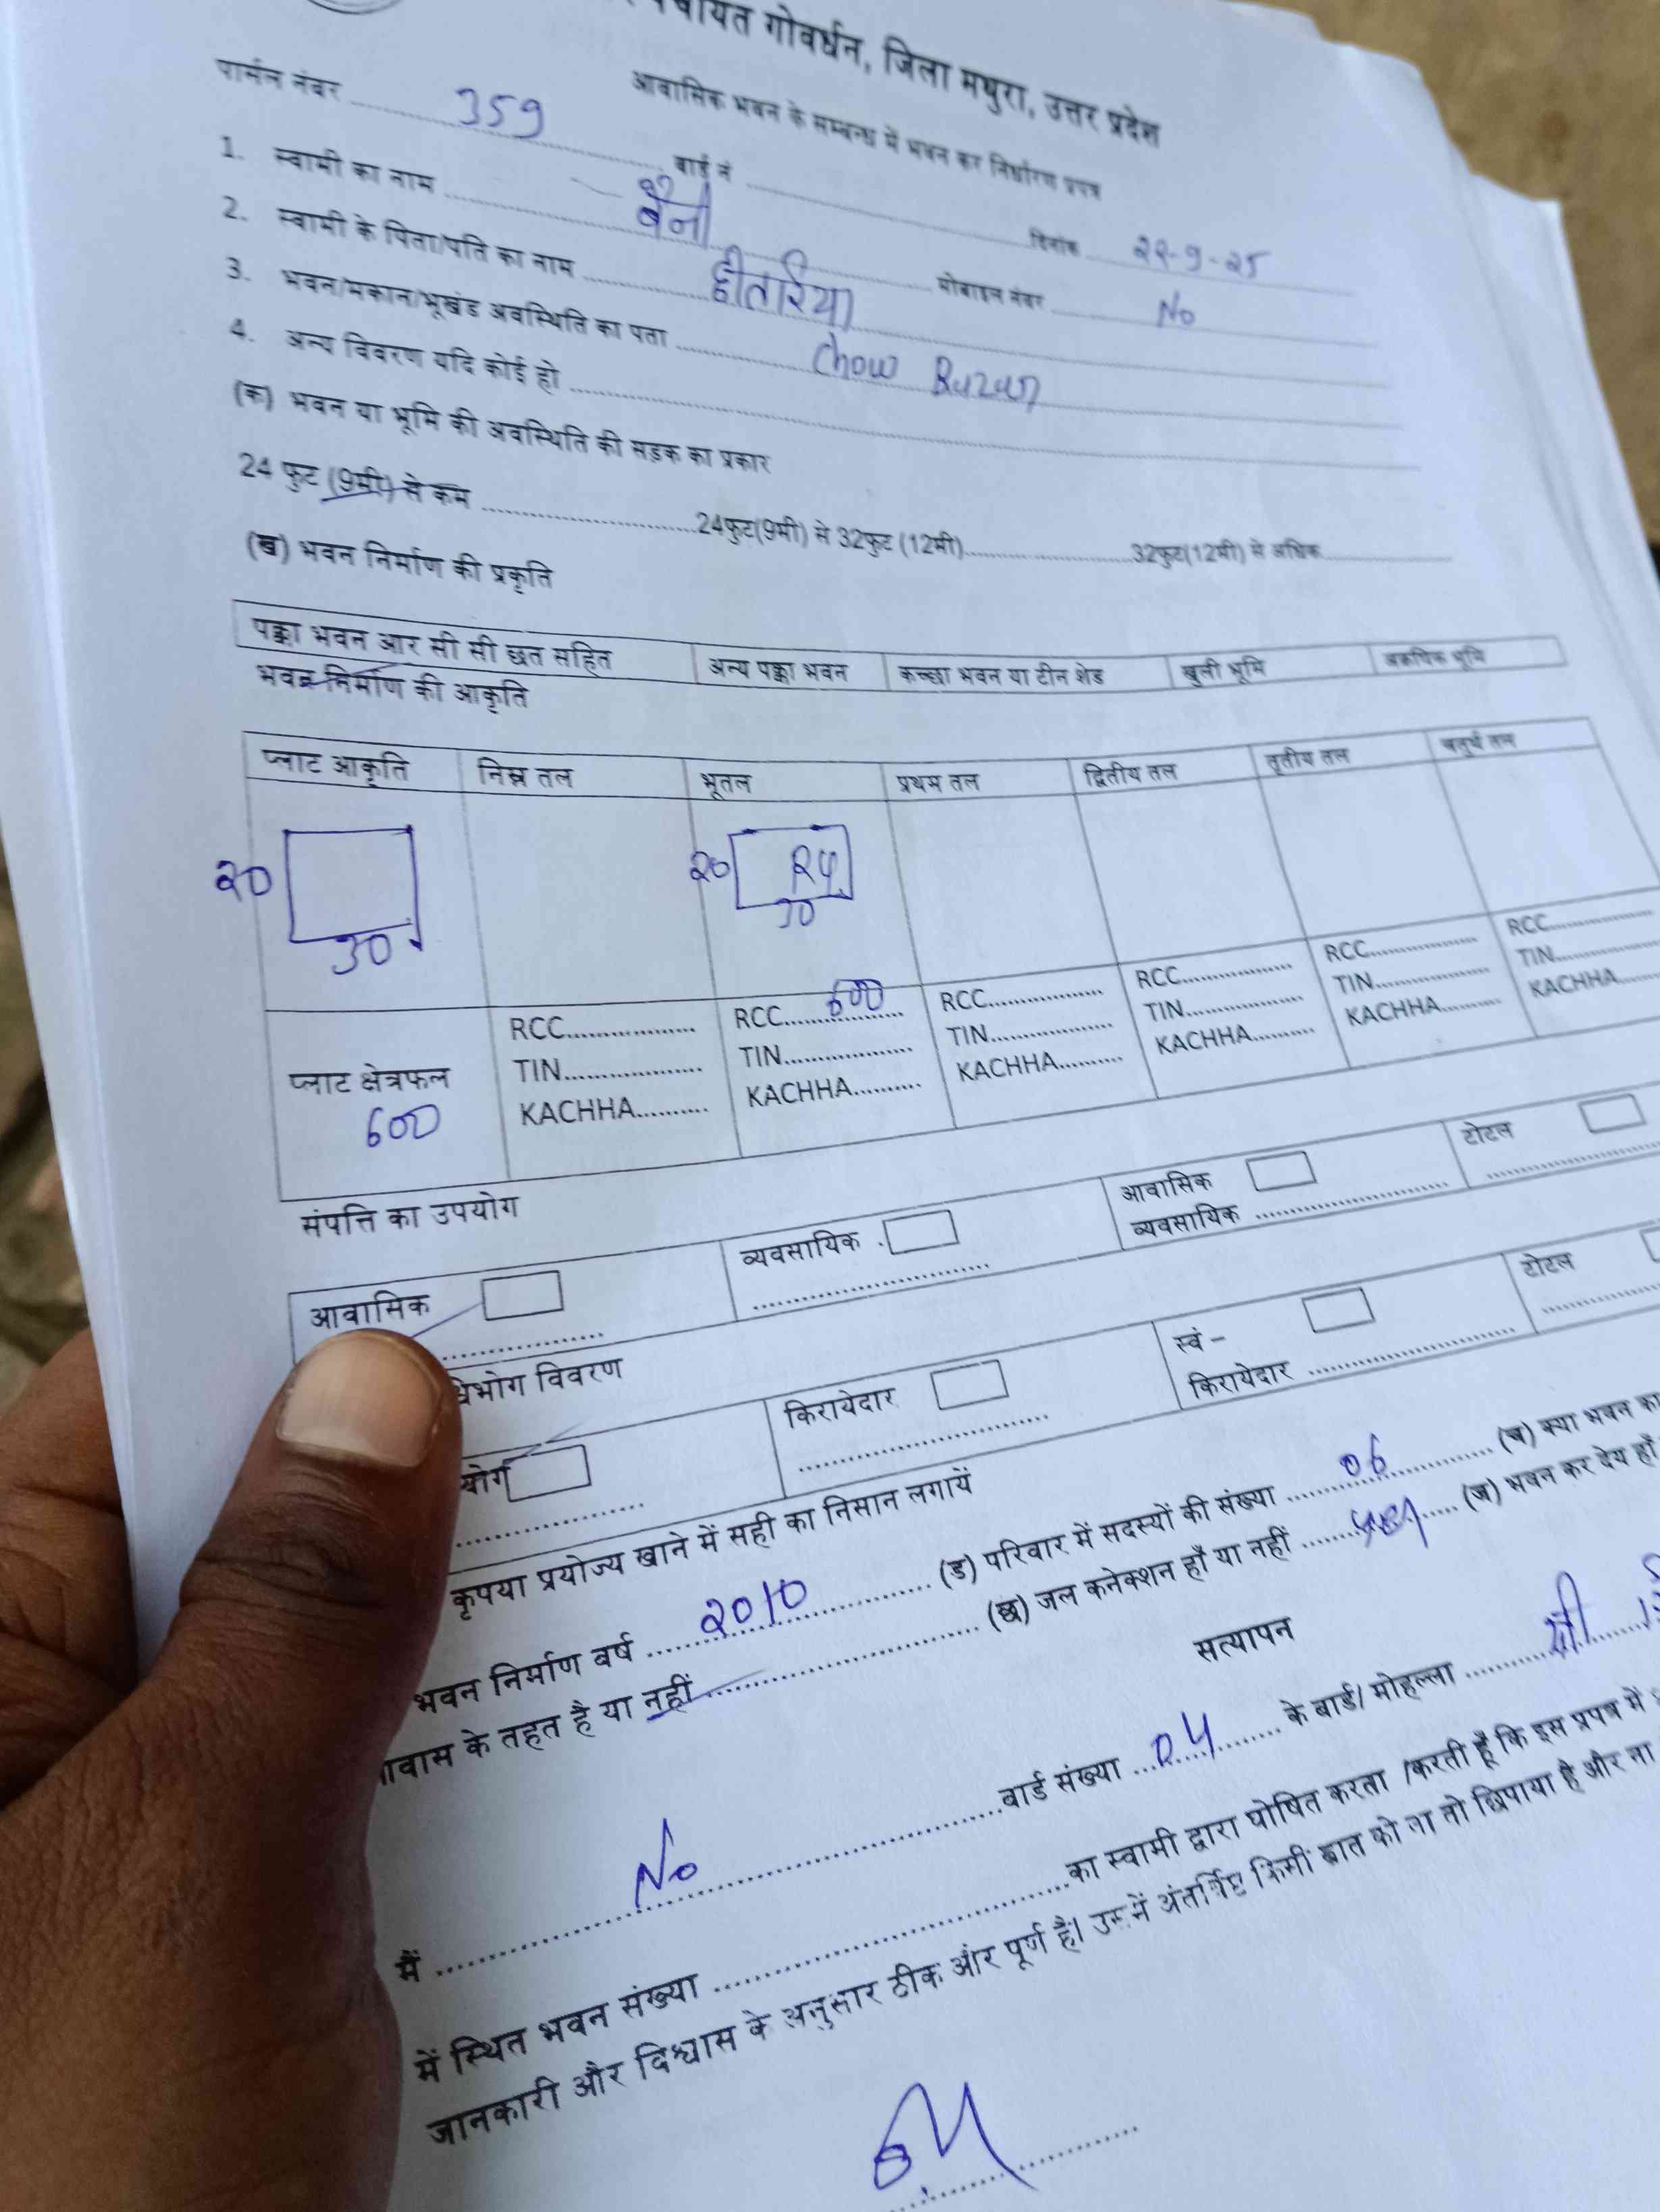 पंचायत गोवर्धन, जिला मथुरा, उत्तर प्रदेश
आवासिक भवन के सम्बन्ध में भवन कर निर्धारण प्रपत्र
पार्सल नंबर 359 वार्ड नं दिनांक २२-9-२5
1. स्वामी का नाम बैनी मोबाइल नंबर No
2. स्वामी के पिता/पति का नाम
3. भवन/मकान/भूखंड अवस्थिति का पता Chow Bazar
4. अन्य विवरण यदि कोई हो
(क) भवन या भूमि की अवस्थिति की सड़क का प्रकार
24 फुट (9मी) से कम 24फुट(9मी) से 32फुट (12मी) 32फुट(12मी) से अधिक
(ख) भवन निर्माण की प्रकृति
पक्का भवन आर सी सी छत सहित अन्य पक्का भवन कच्छा भवन या टीन शेड खुली भूमि भूमि
भवन निर्माण की आकृति
प्लाट आकृति निम्न तल भूतल प्रथम तल द्वितीय तल तृतीय तल चतुर्थ तल
२0 30 २0 30
प्लाट क्षेत्रफल 600
RCC TIN KACHHA
RCC 600 TIN KACHHA
RCC TIN KACHHA
RCC TIN KACHHA
RCC TIN KACHHA
RCC TIN KACHHA
संपत्ति का उपयोग
आवासिक व्यवसायिक आवासिक व्यवसायिक टोटल
विवरण
किरायेदार स्वं – किरायेदार टोटल
कृपया प्रयोज्य खाने में सही का निसान लगायें
भवन निर्माण वर्ष २010 (ड) परिवार में सदस्यों की संख्या 06 (च) क्या भवन का
के तहत है या नहीं (छ) जल कनेक्शन हाँ या नहीं (ज) भवन कर देय हाँ
सत्यापन
मैं No वार्ड संख्या के बार्ड/ मोहल्ला
में स्थित भवन संख्या का स्वामी द्वारा घोषित करता /करती हूँ कि इस प्रपत्र में
जानकारी और विश्वास के अनुसार ठीक और पूर्ण है। उसमें किसी बात को ना तो छिपाया है और ना